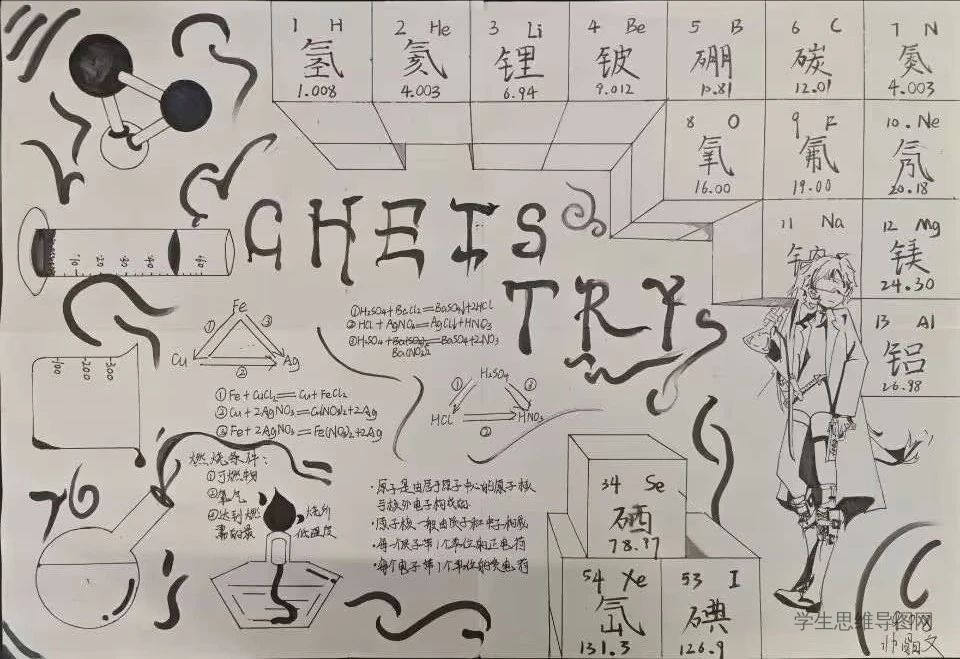 1 H
氢
1.008
2 He
氦
4.003
3 Li
锂
6.94
4 Be
铍
9.012
5 B
硼
10.81
6 C
碳
12.01
7 N
氮
4.003
8 O
氧
16.00
9 F
氟
19.00
10.Ne
氖
20.18
11 Na
钠
12 Mg
镁
24.30
13 Al
铝
26.98
CHEIS
TRY
10 20 30 40 60
Fe
① ③
Cu Ag
②
①H₂SO₄+BaCl₂=BaSO₄↓+2HCl
②HCl+AgNO₃=AgCl↓+HNO₃
Ba(NO₃)₂
H₂SO₄
① ③
HCl HNO₃
②
100 200 300
①Fe+CuCl₂=Cu+FeCl₂
②Cu+2AgNO₃=Cu(NO₃)₂+2Ag
③Fe+2AgNO₃=Fe(NO₃)₂+2Ag
燃烧条件:
①可燃物
②氧气
③达到燃
·原子是由居于原子中心的原子核
与核外电子构成的
·原子核一般由质子和中子构成
·每一个质子带1个单位的正电荷
·每个电子带1个单位的负电荷
34 Se
硒
78.97
54 Xe
氙
131.3
53 I
碘
126.9
学生思维导图网